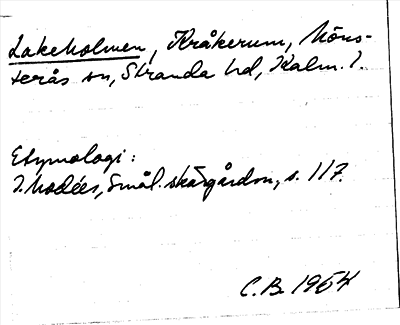 Lakeholmen, Kråkerum, Möns-
terås sn, Stranda hd, Kalm. l.
Etymologi:
I. Modéer, Smål. skärgårdsn, s. 117.
C.B. 1964